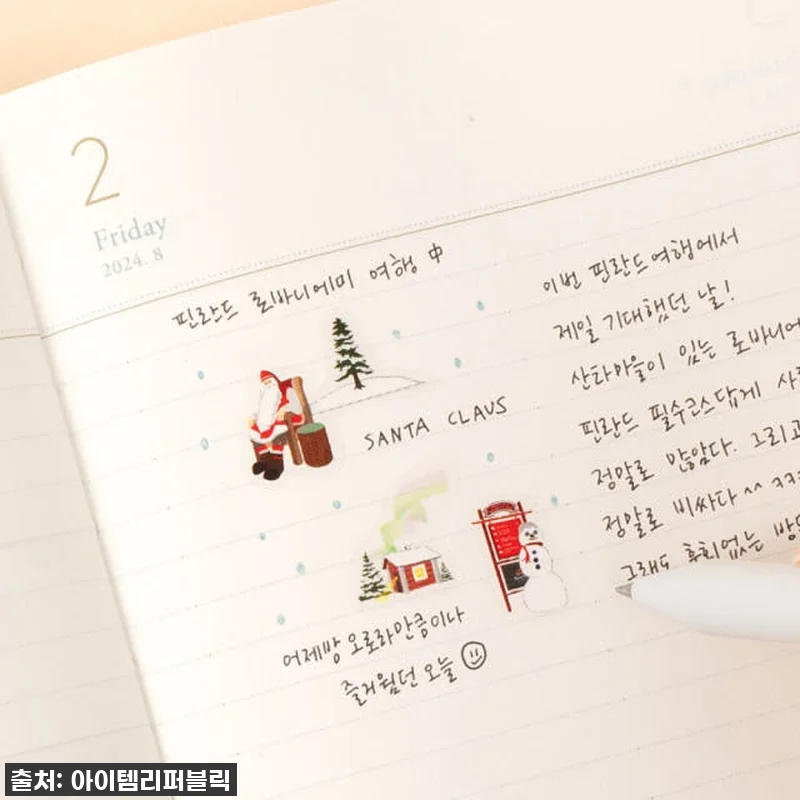 2
Friday
2024. 8
핀란드 로바니에미 여행 中
SANTA CLAUS
어제밤 오로라만큼이나
즐거웠던 오늘
이번 핀란드여행에서
제일 기대했던 날!
산타마을이 있는 로바니에
핀란드 필수코스답게 사
정말로 많았다. 그리고
정말로 비싸다 ^^ ㅋㅋ
그래도 후회없는 방
출처: 아이템리퍼블릭